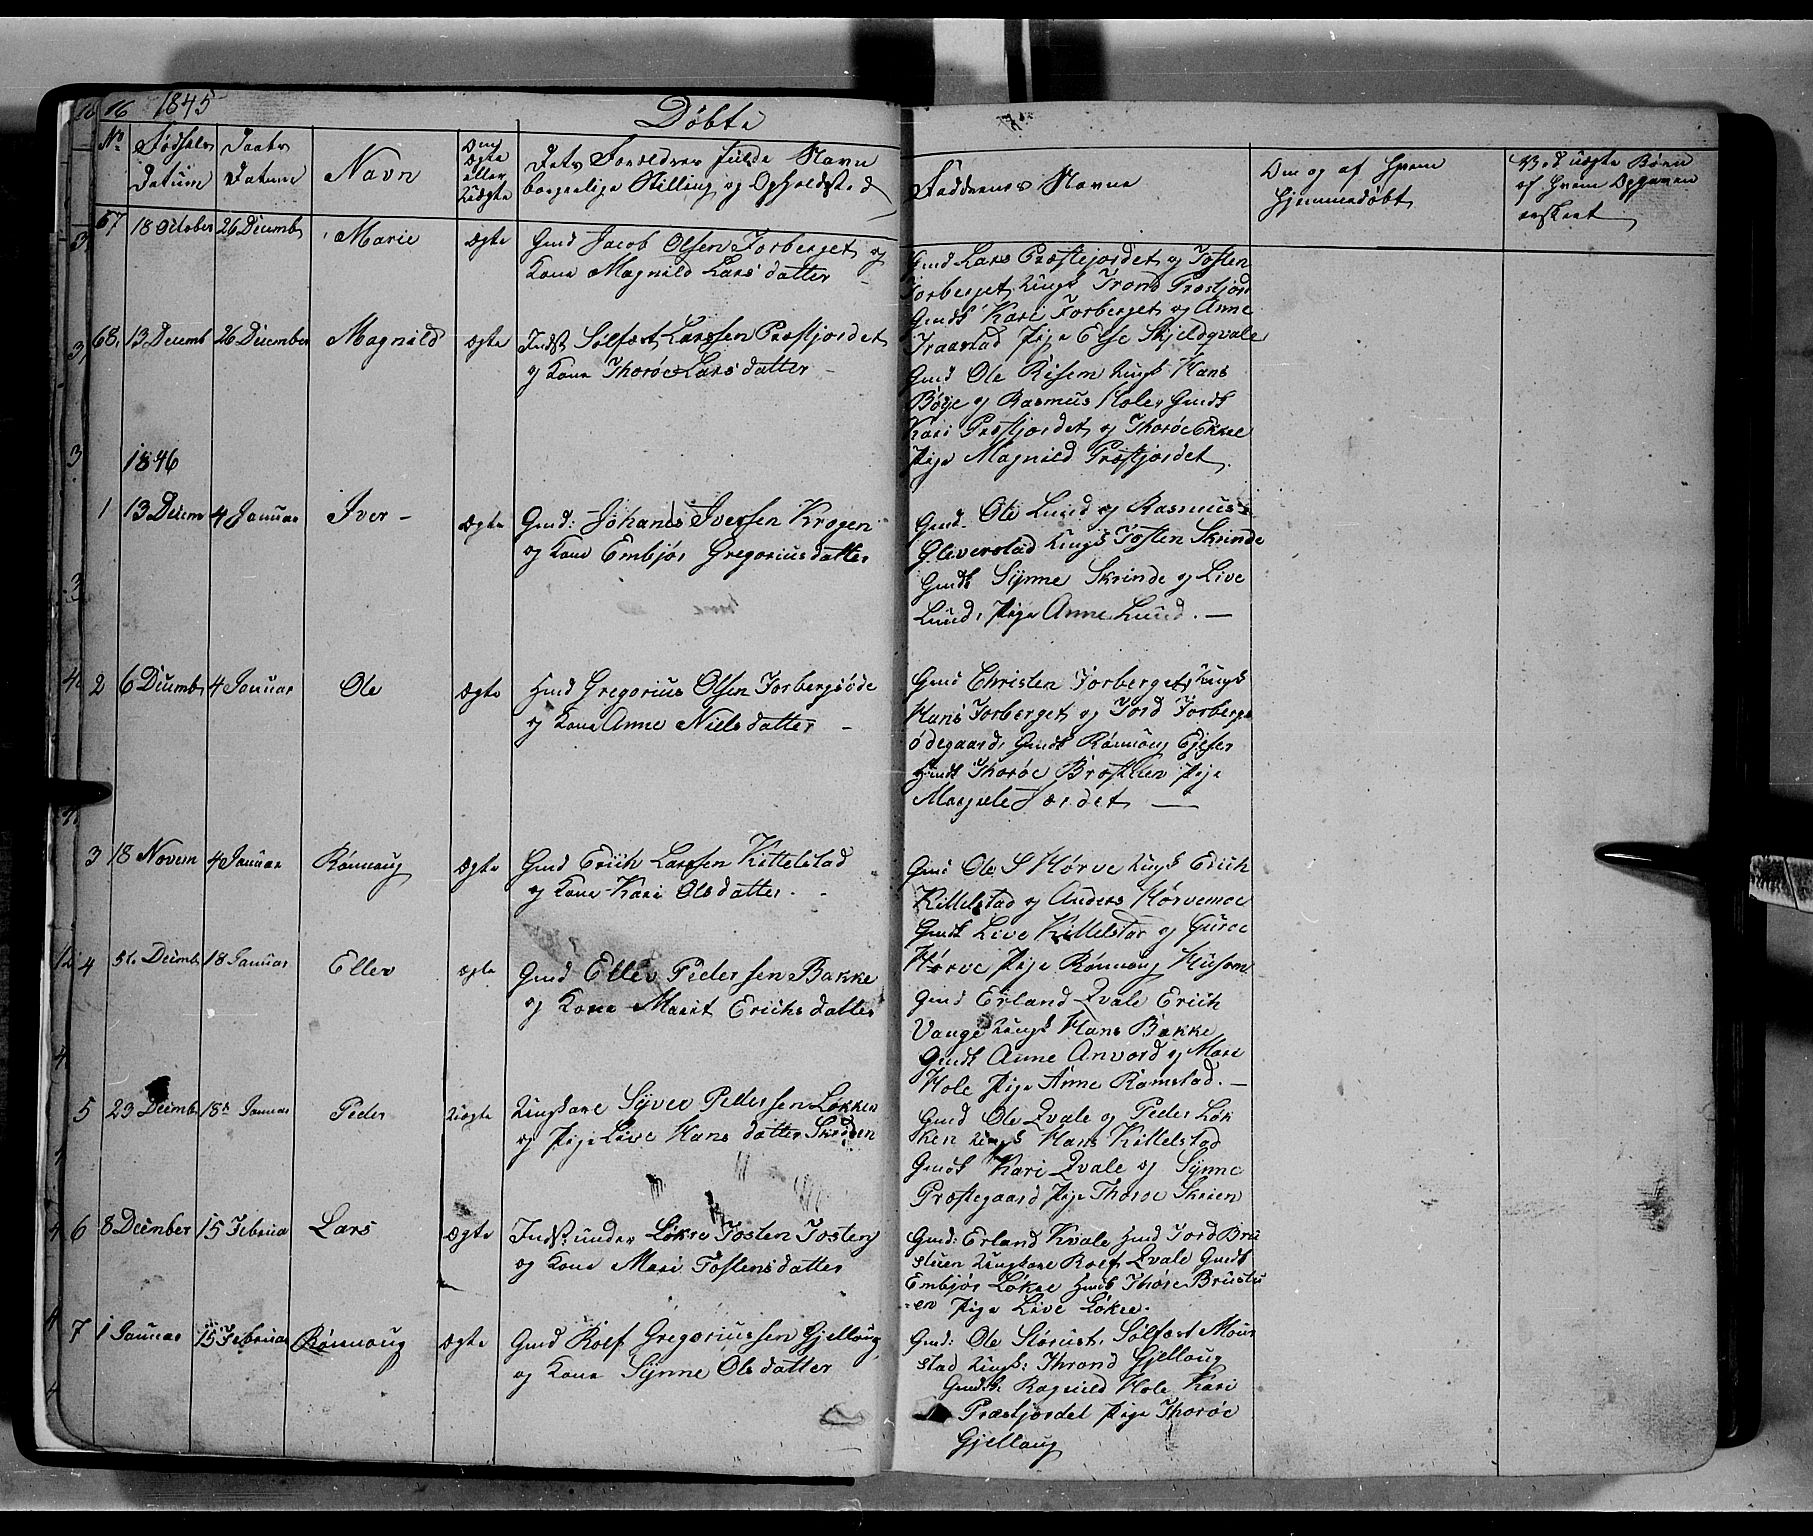 16 1845 Døbte
No Fødsels Datum Daabs Datum Navn Om Ægte eller Uægte Dets Forældres fulde Navne borgerlige Stilling og Opholdsted
Faddernes Navne Om og af Hvem Hjemmedøbt Ved uægte Børn af Hvem Opgaven
67 18 October 26 Decemb Marie Ægte Gmd Jacob Olsen Forberget og
Kone Magnild Larsdatter
Gmd Lars Præstejordet og Tosten
Forberget, Ungk Trond Præstjord
Gmdk Kari Forberget og Anne
Traastad Pige Else Skjeldqvale
68, 13 Decemb 26 December Magnild Ægte Indst Sølfæst Larssen Præstjordet
og Kone Thoröe Larsdatter –
Gmd Ole Risem Ungk Hans
Böye og Rasmus Holer Gmdk
Kari Præstjordet og Thoröe Ekre
Pige Magnild Præstjordet.
1846
1 13 Decem 4 Januar Iver – Ægte Gmd: Johanes Iversen Krogen
og Kone Embjör Gregoriusdatter
Gmd. Ole Lund og Rasmus
Qleverstad Ungk Tosten Skrinde
Gmdk Synne Skrinde og Live
Lund, Pige Anne Lund. —
2 6 Decemb 4 Januar Ole Ægte Hmd Gregorius Olsen Forbergsøde
og Kone Anne Nielsdatter –
Gmd Christen Forberget, Ungk
Hans Forberget og Tord Forbergs
ødegaard, Gmdk Rönnoug
Hmdk Thoröe Pige
3 18 Novem 4 Januar Rönnoug Ægte Gmd Erich Larssen Kittelstad
og Kone Kari Olsdatter. –
Gmd Ole S Hörve Ungk Erich
Kittelstad og Anders Hörvemoe
Gmdk Live Kittelstad og Guroe
Hörve Pige Rönnoug
4 5te Decemb 18 Januar Ellev Ægte Gmd Ellev Pedersen Bakke
og Kone Marit Erichsdatter
Gmd Erland Qvale Erich
Vange Ungk Hans Bakke
Gmdk Anne Anvord og Mari
Hole Pige Anne Ramstad. —
5 23 Decemb 18 Januar Peder Uægte Ungkare Syver Pedersen Løkken
og Pige Live Hansdatter Skreien
Gmd Ole Qvale og Peder Løk
ken Ungk Hans Kittelstad
Gmdk Kari Qvale og Synne
Præstegaard Pige Thoröe Skrien
6 8 December 15 Februa Lars Ægte Indst: under Løkre Tosten Tosten
og Kone Mari Tostensdatter
Gmd: Erland Kvale Hmd Tord Bru
stuen Ungkare Rolf Qvale Gmdk
Embjör Løkre Hmdk Thöre Brustu
en Pige Live Løkre.
7 1 Januar 15 Februar Rönnoug Ægte Gmd Rolf Gregoriussen Gjelloug
og Kone Synne Olsdatter
Gmd: Ole Störust, Sölfæst Mour
stad Ungk: Thrond Gjelloug
Gmdk. Ragnild Hole Kari
Præstjordet Pige Thoröe
Gjelloug